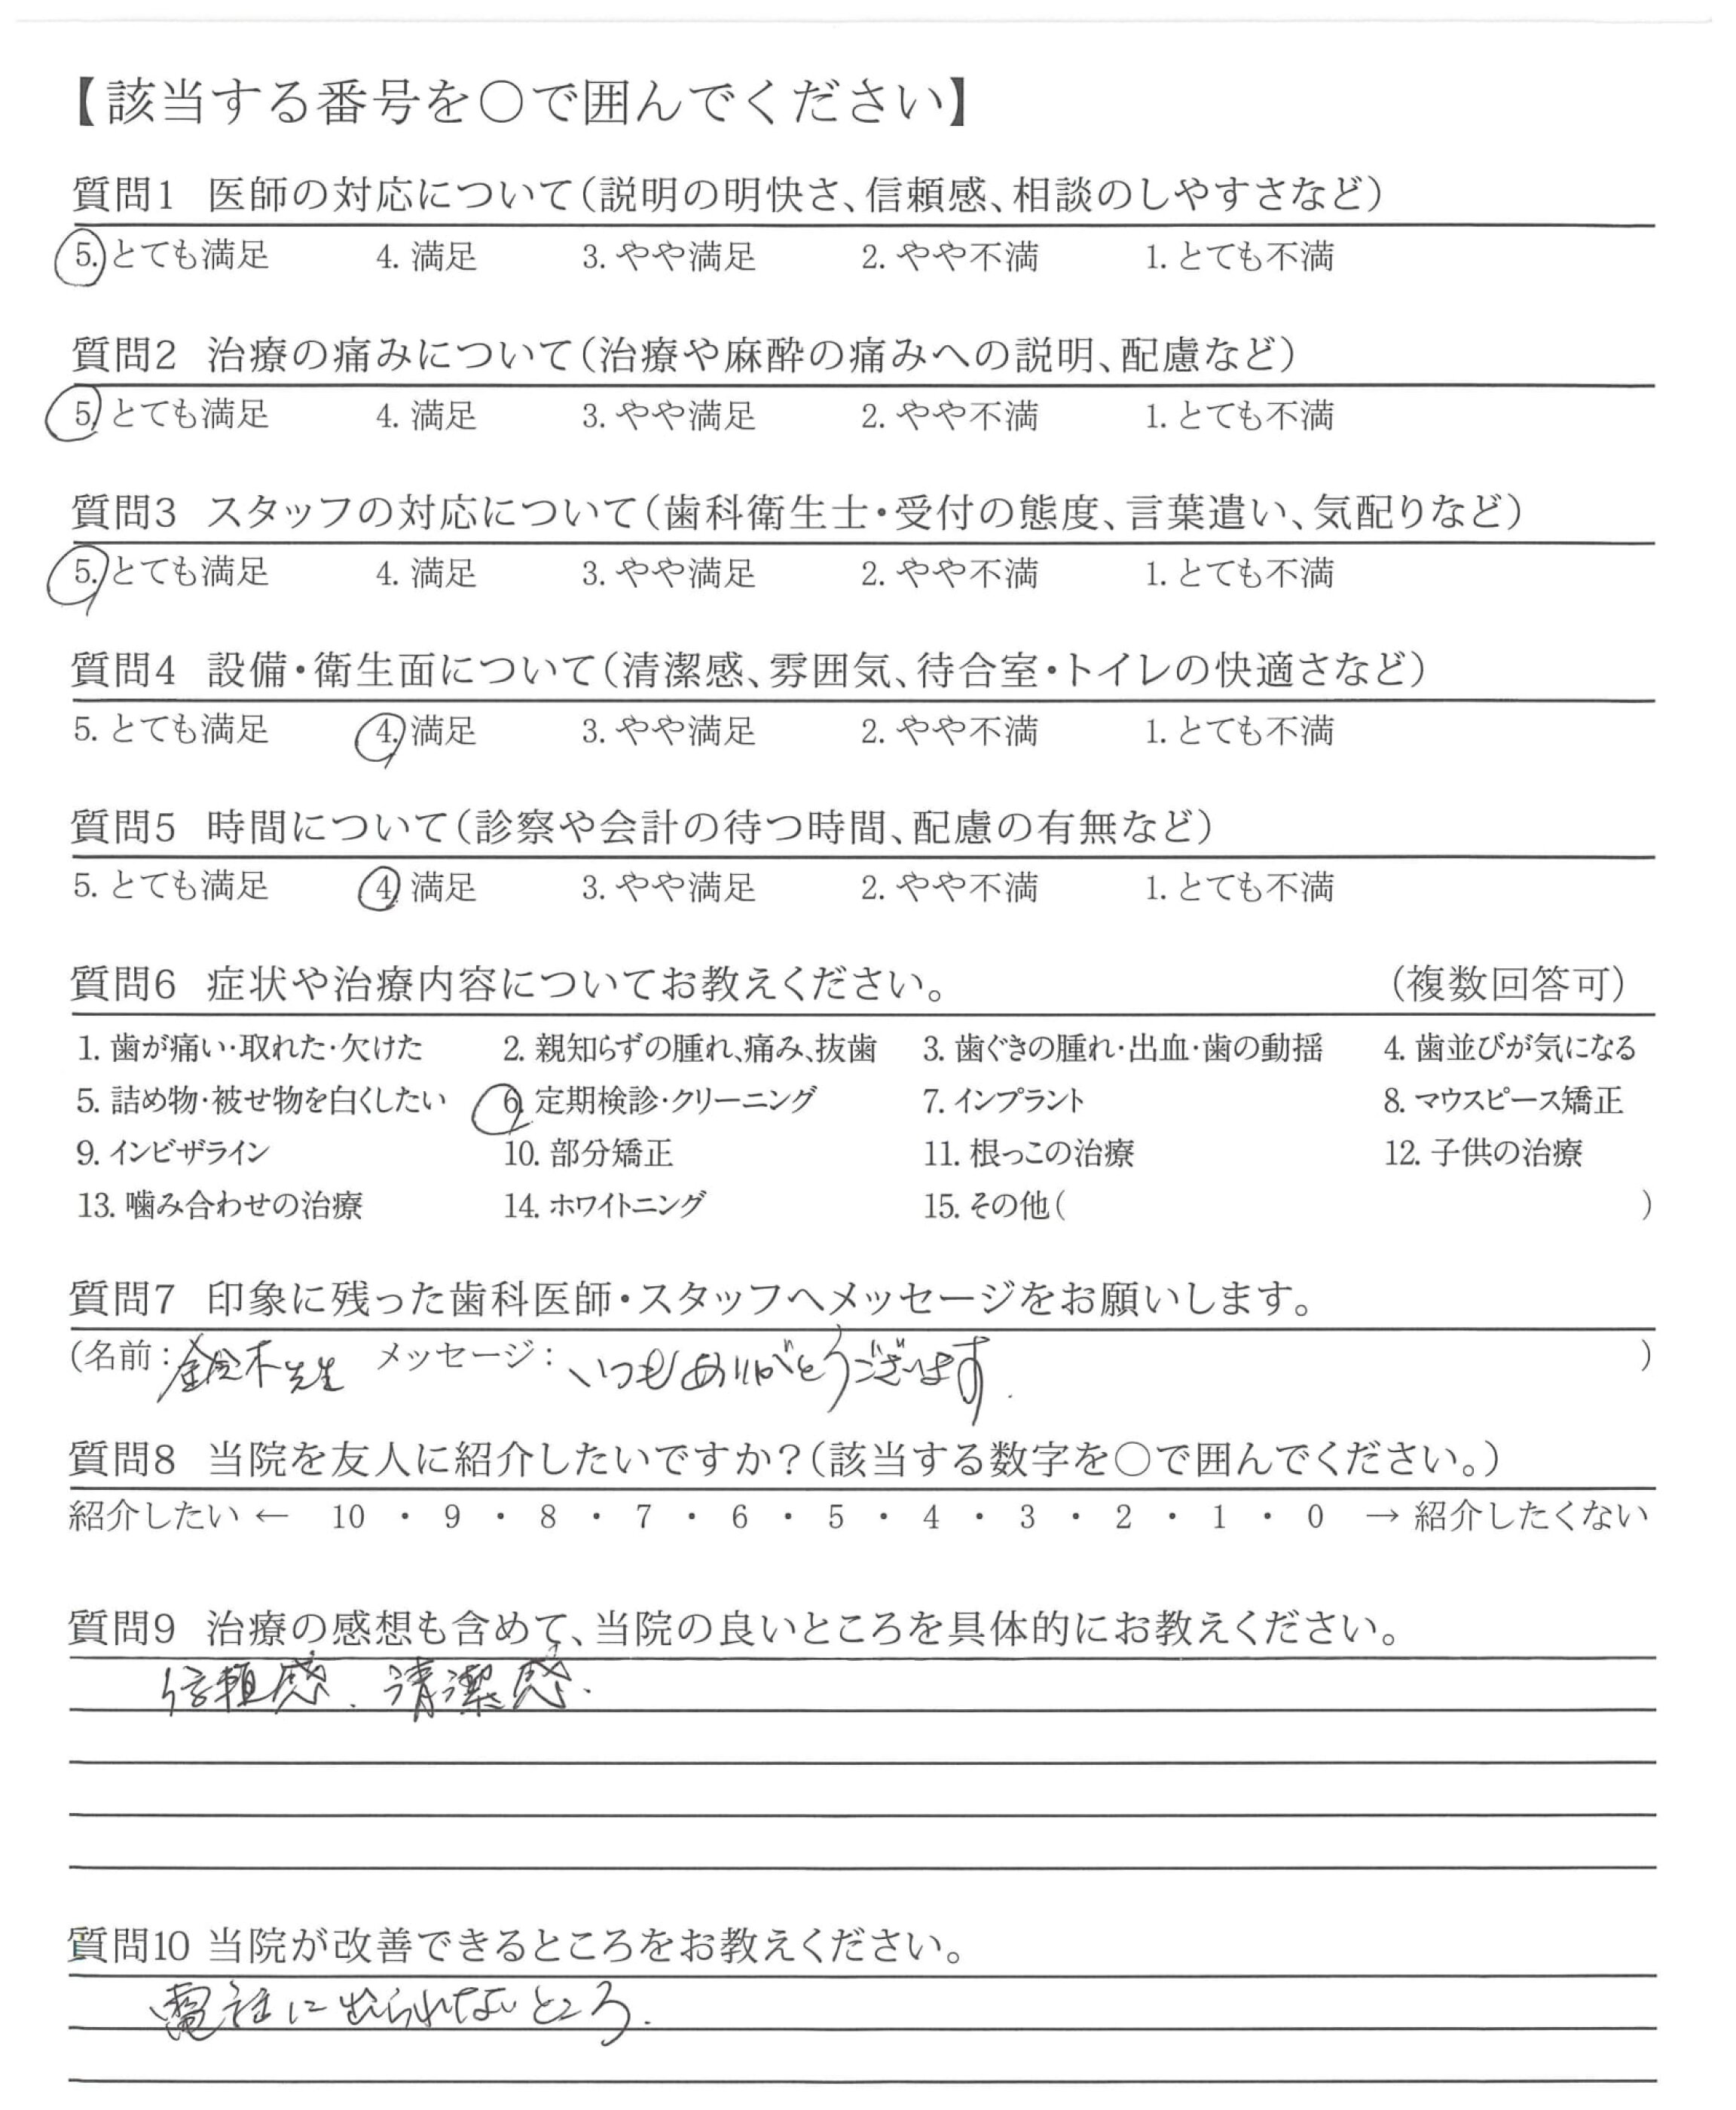 【該当する番号を○で囲んでください】
質問1 医師の対応について(説明の明快さ、信頼感、相談のしやすさなど)
5. とても満足 4. 満足 3. やや満足 2. やや不満 1. とても不満
質問2 治療の痛みについて(治療や麻酔の痛みへの説明、配慮など)
5. とても満足 4. 満足 3. やや満足 2. やや不満 1. とても不満
質問3 スタッフの対応について(歯科衛生士・受付の態度、言葉遣い、気配りなど)
5. とても満足 4. 満足 3. やや満足 2. やや不満 1. とても不満
質問4 設備・衛生面について(清潔感、雰囲気、待合室・トイレの快適さなど)
5. とても満足 4. 満足 3. やや満足 2. やや不満 1. とても不満
質問5 時間について(診察や会計の待つ時間、配慮の有無など)
5. とても満足 4. 満足 3. やや満足 2. やや不満 1. とても不満
質問6 症状や治療内容についてお教えください。 (複数回答可)
1. 歯が痛い・取れた・欠けた 2. 親知らずの腫れ、痛み、抜歯 3. 歯ぐきの腫れ・出血・歯の動揺 4. 歯並びが気になる
5. 詰め物・被せ物を白くしたい 6. 定期検診・クリーニング 7. インプラント 8. マウスピース矯正
9. インビザライン 10. 部分矯正 11. 根っこの治療 12. 子供の治療
13. 噛み合わせの治療 14. ホワイトニング 15. その他( )
質問7 印象に残った歯科医師・スタッフへメッセージをお願いします。
(名前:鈴木先生 メッセージ:いつもありがとうございます. )
質問8 当院を友人に紹介したいですか?(該当する数字を○で囲んでください。)
紹介したい ← 10 ・ 9 ・ 8 ・ 7 ・ 6 ・ 5 ・ 4 ・ 3 ・ 2 ・ 1 ・ 0 → 紹介したくない
質問9 治療の感想も含めて、当院の良いところを具体的にお教えください。
信頼感. 清潔感.
質問10 当院が改善できるところをお教えください。
電話に出られないところ.